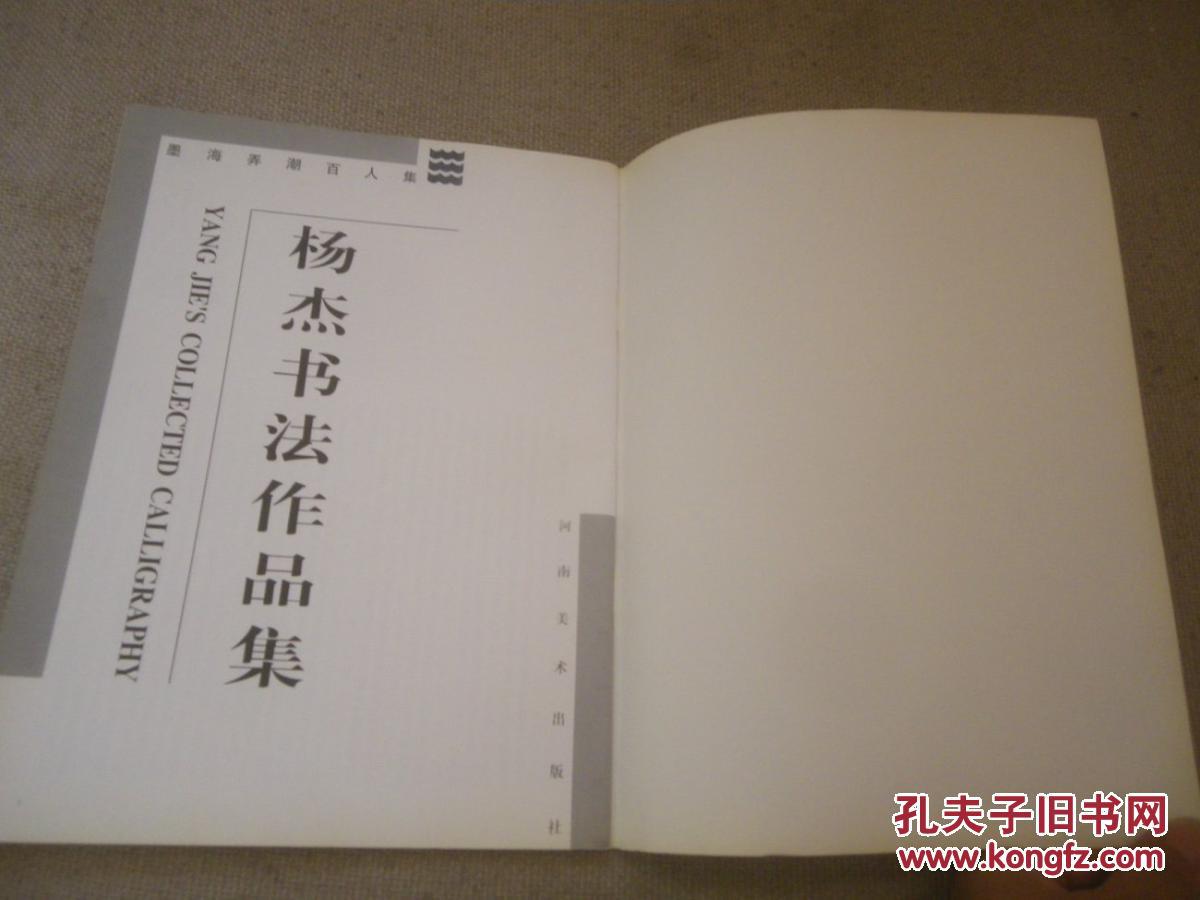 墨海弄潮百人集
杨杰书法作品集
YANG JIE'S COLLECTED CALLIGRAPHY
河南美术出版社
孔夫子旧书网
www.kongfz.com